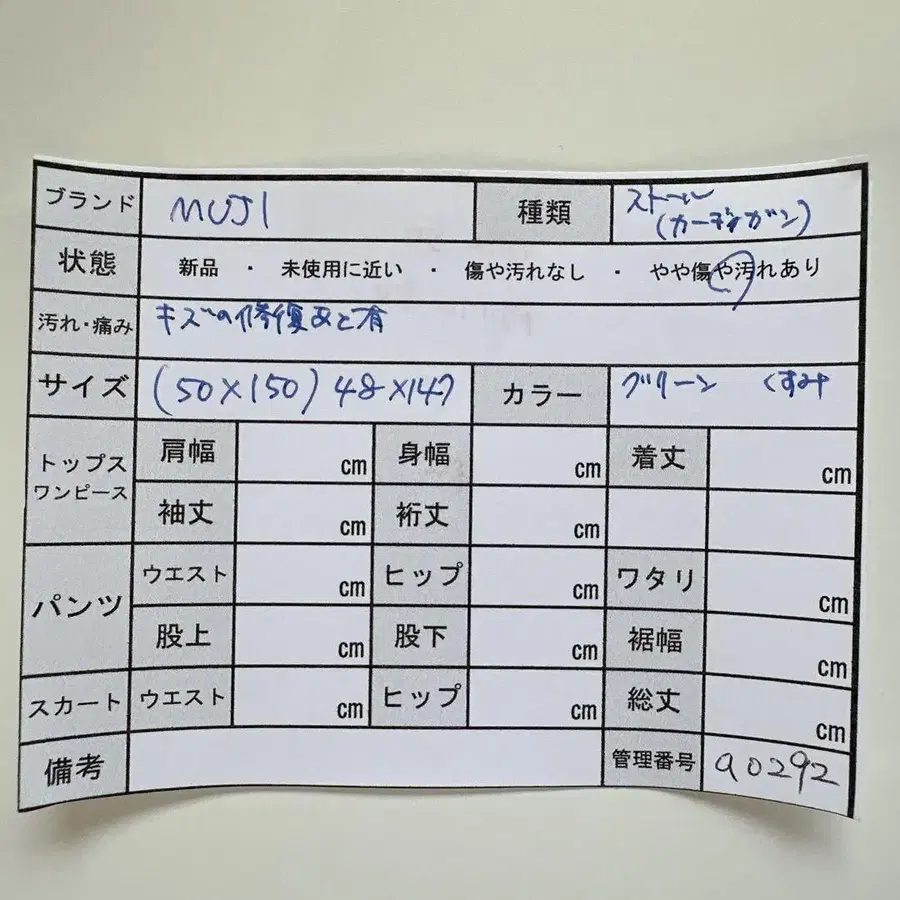 ブランド MUJI 種類 ストール
(カーディガン)
状態 新品 ・ 未使用に近い ・ 傷や汚れなし ・ やや傷や汚れあり
汚れ・痛み キズの修復あと有
サイズ (50×150) 48×147 カラー グリーン くすみ
トップス
ワンピース
肩幅 cm 身幅 cm 着丈 cm
袖丈 cm 裄丈 cm
パンツ
ウエスト cm ヒップ cm ワタリ cm
股上 cm 股下 cm 裾幅 cm
スカート ウエスト cm ヒップ cm 総丈 cm
備考 管理番号 a0292